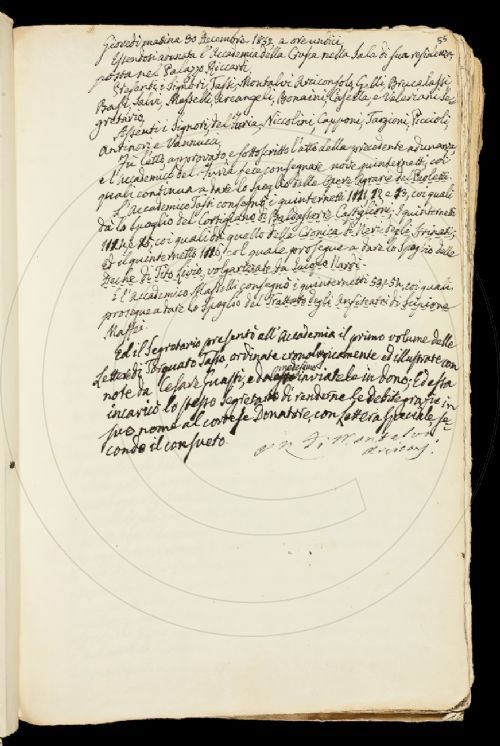 55
Giovedì mattina 30 Decembre 1852 a ore undici
Essendosi adunata l'Accademia della Crusca nella Sala di sua residenza,
posta nel Palazzo Riccardi,
Presenti i Signori, Tasti, Montalvi, Arciconsolo, Gelli, Brucalassi
Basi, Salvi, Masselli, Arcangeli, Bonaini, Casella, e Valeriani Se-
gretario,
Assenti i Signori, Del Furia, Niccolini, Capponi, Targioni, Piccioli,
Antinori, e Vannucci,
Fù letto, approvato, e sottoscritto l'atto della precedente adunanza
e l'Accademico Del Furia fece consegnare nove quinternetti, coi
quali continua a fare lo spoglio delle Opere Agrarie del Paoletti.
L'Accademico Tasti consegnò i quinternetti 1121, 22 e 23, coi quali
dà lo Spoglio del Cortigiano di Baldassarre Castiglione, i quinternetti
1124 e 25, coi quali dà quello della Cronica di Neri degli Strinati;
ed il quinternetto 1126, col quale prosegue a fare lo Spoglio delle
Deche di Tito Livio, volgarizzate da Jacopo Nardi.
E l'Accademico Masselli consegnò i quinternetti 53, e 54, coi quali
prosegue a fare lo Spoglio del Trattato degli Anfiteatri di Scipione
Maffei.
Ed il Segretario presentò all'Accademia il primo volume delle
Lettere di Torquato Tasso ordinate cronologicamente ed illustrate con
note da Cesare Guasti, e da medesimo inviatele in dono; Ed essa
incaricò lo stesso Segretario di renderne le debite grazie in
suo nome al cortese Donatore, con Lettera speciale, se-
condo il consueto.
Di Montalvo